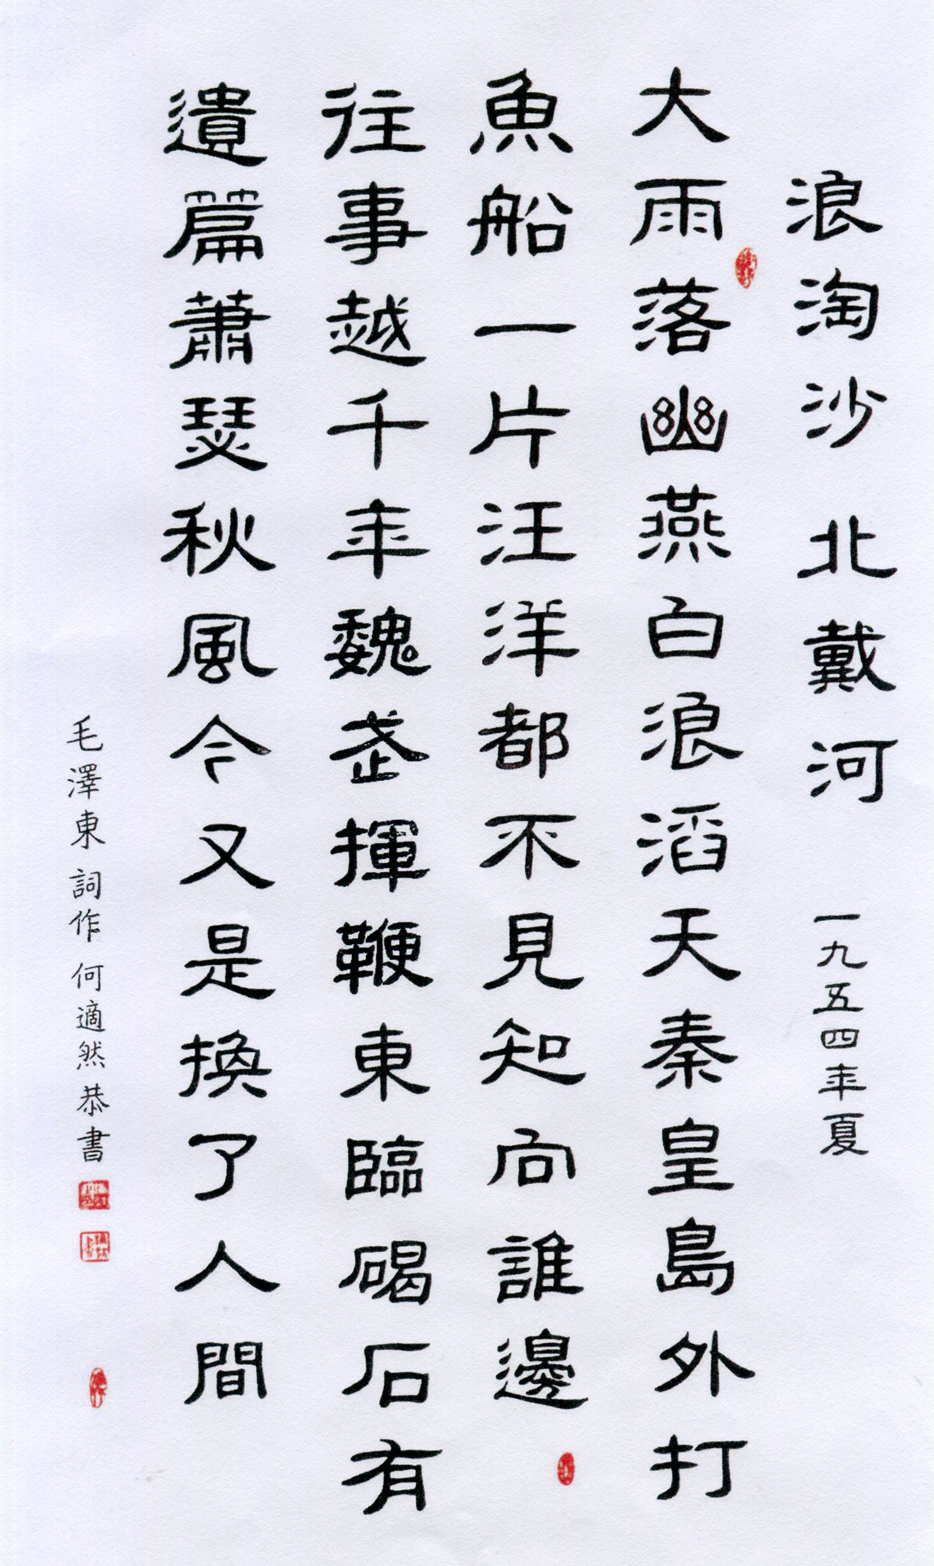 浪淘沙 北戴河 一九五四年夏
大雨落幽燕白浪滔天秦皇島外打
魚船一片汪洋都不見知向誰邊
往事越千年魏武揮鞭東臨碣石有
遺篇蕭瑟秋風今又是換了人間
毛澤東 詞作 何適然 恭書